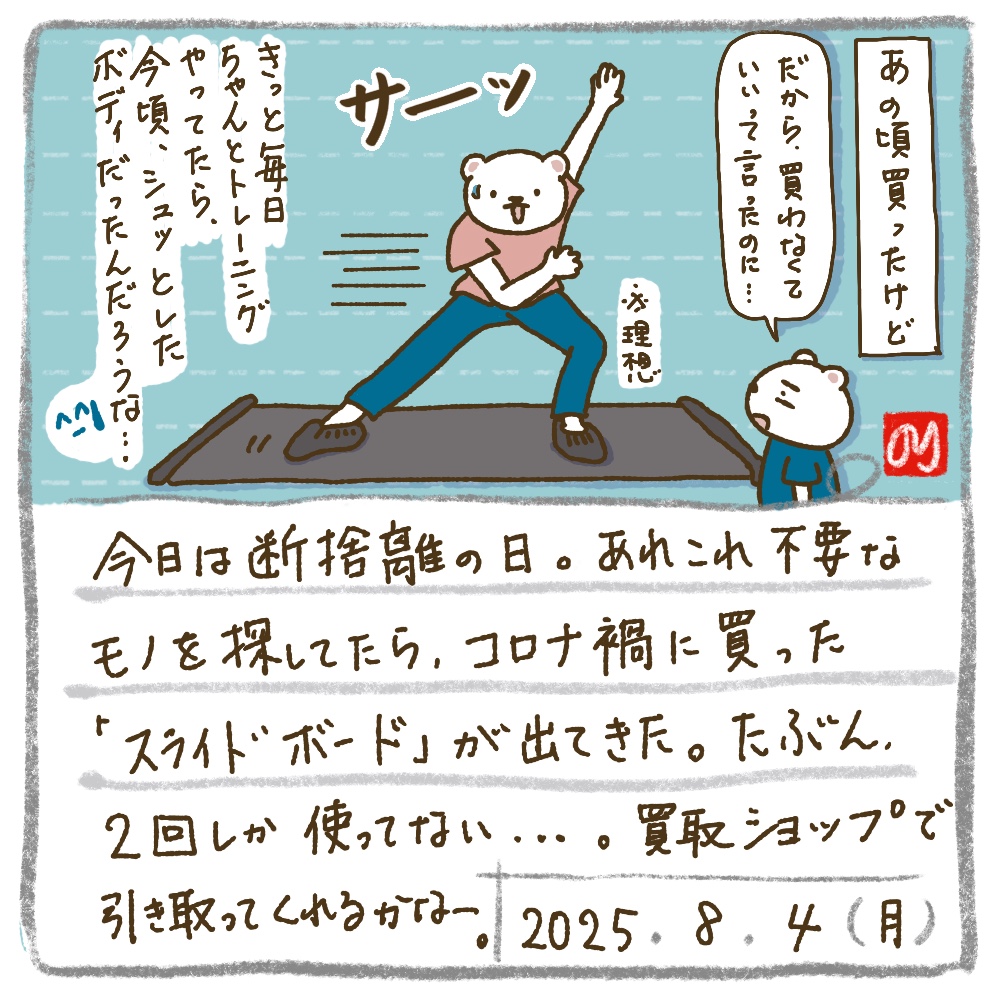 あの頃買ったけど
だから、買わなくて
いいって言ったのに…
サーッ
※理想
きっと毎日
ちゃんとトレーニング
やってたら、
今頃、シュッとした
ボディだったんだろうな…
今日は断捨離の日。あれこれ不要な
モノを探してたら、コロナ禍に買った
「スライドボード」が出てきた。たぶん、
2回しか使ってない...。買取ショップで
引き取ってくれるかなー。
2025.8.4(月)